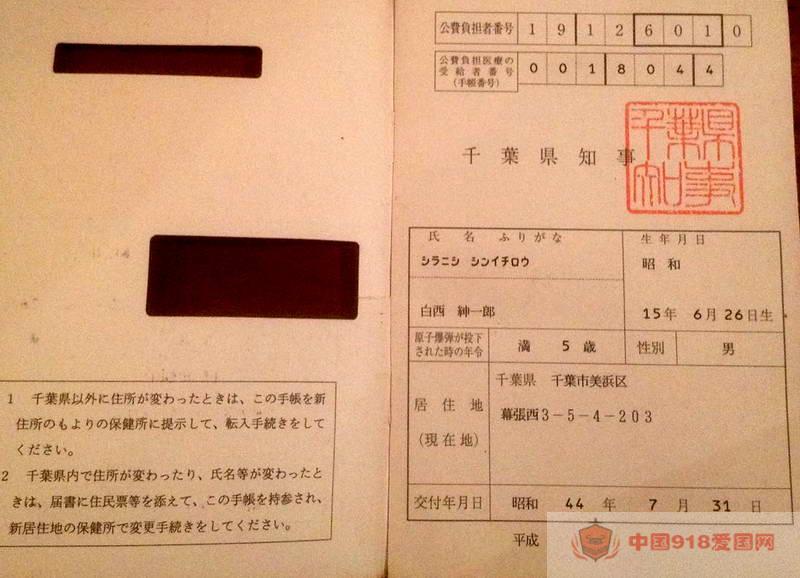 1 千葉県以外に住所が変わったときは、この手帳を新
住所のもよりの保健所に提示して、転入手続きをして
ください。
2 千葉県内で住所が変わったり、氏名等が変わったと
きは、届書に住民票等を添えて、この手帳を持参され、
新居住地の保健所で変更手続きをしてください。
公費負担者番号 1 9 1 2 6 0 1 0
公費負担医療の
受給者番号
(手帳番号)
0 0 1 8 0 4 4
千葉県知事
千葉県
知事
氏名 ふりがな
シラニシ シンイチロウ
白西 紳一郎
生年月日
昭和
15年 6月26日生
原子爆弾が投下
された時の年令
満 5 歳
性別
男
居住地
(現在地)
千葉県 千葉市美浜区
幕張西3-5-4-203
交付年月日 昭和 44 年 7 月 31 日
平成
中国918爱国网